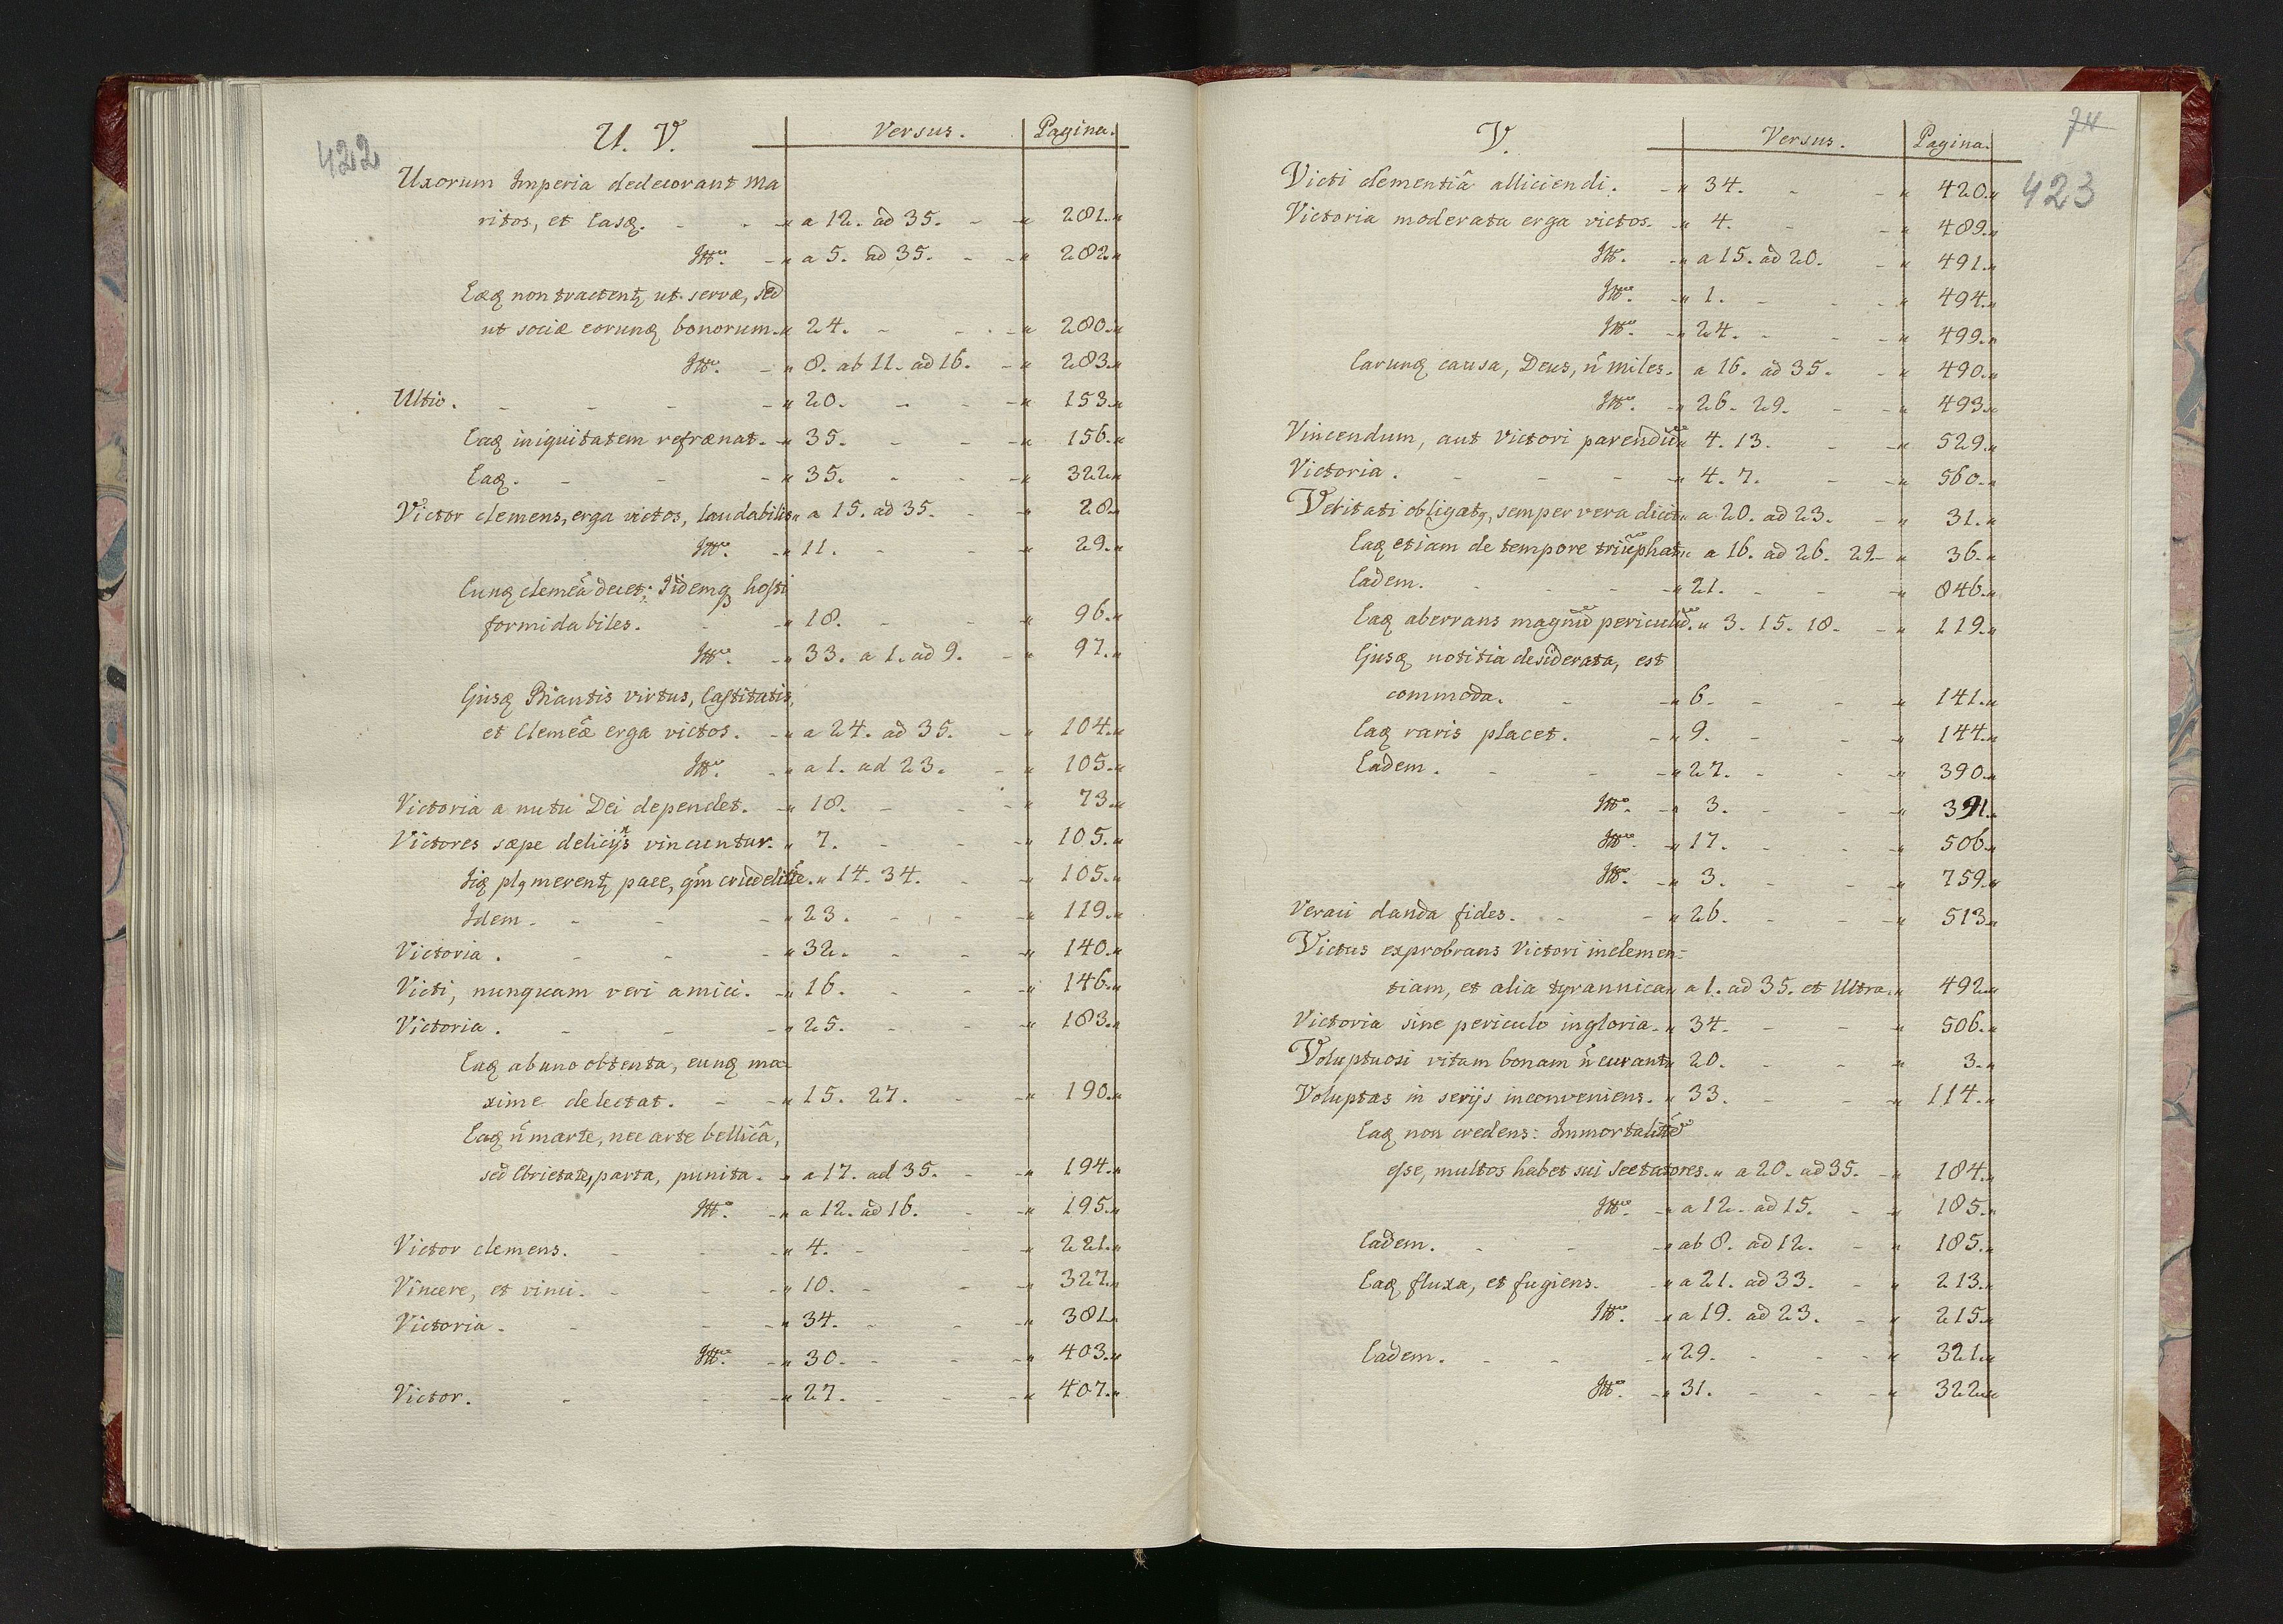 422
U. V. Versus. Pagina.
Uxorum Imperia dedecorant ma
ritos, et Easq. a 12. ad 35. 281.
Itt. a 5. ad 35. 282.
Eæq non tractentq ut servæ, sed
ut sociæ eorunq bonorum. 24. 280.
Itt. 8. ab 11. ad 16. 283.
Ultio. 20. 153.
Eaq iniquitatem refrænat. 35. 156.
Eaq. 35. 322.
Victor clemens, erga victos, laudabilis a 15. ad 35. 28.
Itt. 11. 29.
Eunq clemêa decet; Iidemq hosti
formidabiles. 18. 96.
Itt. 33. a 1. ad 9. 97.
Ejusq Biantis virtus, Castitatis,
et Clemêæ erga victos. a 24. ad 35. 104.
Itt. a 1. ad 23. 105.
Victoria a nutu Dei dependet. 18. 73.
Victores sæpe delicijs vincuntur. 7. 105.
Iiq plq merentq pace, qm crudelitate. 14. 34. 105.
Idem. 23. 119.
Victoria. 32. 140.
Victi, nunquam veri amici. 16. 146.
Victoria. 25. 183.
Eaq ab uno obtenta, eunq ma
xime delectat. 15. 27. 190.
Eaq ñ marte, nec arte bellicâ,
sed Ebrietate, parta, punita. a 17. ad 35. 194.
Itt. a 12. ad 16. 195.
Victor clemens. 4. 221.
Vincere, et vinci. 10. 327.
Victoria. 34. 381.
Itt. 30. 403.
Victor. 27. 407.
74
423
V. Versus. Pagina.
Victi clementiâ alliciendi. 34. 420.
Victoria moderata erga victos. 4. 489.
Itt. a 15. ad 20. 491.
Itt. 1. 494.
Itt. 24. 499.
Earunq causa, Deus, ñ miles. a 16. ad 35. 490.
Itt. 26. 29. 493.
Vincendum, aut Victori parendũ 4. 13. 529.
Victoria. 4. 7. 560.
Veritati obligatq, semper vera dicit a 20. ad 23. 31.
Eaq etiam de tempore triũphat a 16. ad 26. 29. 36.
Eadem. 21. 846.
Eaq aberrans magnũ periculũ. 3. 15. 18. 119.
Ejusq notitia desiderata, est
commoda. 6. 141.
Eaq raris placet. 9. 144.
Eadem. 27. 390.
Itt. 3. 391.
Itt. 17. 506.
Itt. 3. 759.
Veraci danda fides. 26. 513.
Victus exprobrans Victori inclemen=
tiam, et alia tyrannica a 1. ad 35. et Ultra. 492.
Victoria sine periculo ingloria. 34. 506.
Voluptuosi vitam bonam ñ curant 20. 3.
Voluptas in serijs inconveniens. 33. 114.
Eaq non credens: Immortalitatẽ
esse, multos habet sui sectatores. a 20. ad 35. 184.
Itt. a 12. ad 15. 185.
Eadem. ab 8. ad 12. 185.
Eaq fluxa, et fugiens. a 21. ad 33. 213.
Itt. a 19. ad 23. 215.
Eadem. 29. 321.
Itt. 31. 322.